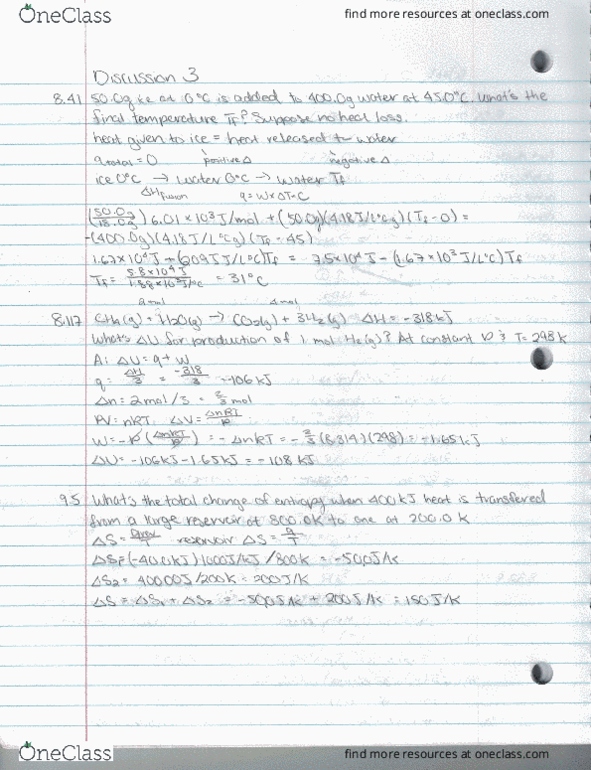 OneClass
find more resources at oneclass.com
Discussion 3
8.41 50.0g ice at 0°C is added to 400.0g water at 45.0°C. What's the
final temperature Tf? Suppose no heat loss.
heat given to ice = heat released to water
qtotal = 0 positive Δ negative Δ
ice 0°C → water 0°C → water Tf
ΔHfusion q =
(50.0g/18.0g) 6.01 × 10³ J/mol + (50.0g)(4.18 J/°Cg)(Tf - 0) =
-(400.0g)(4.18 J/°Cg)(Tf - 45)
1.67×10⁴J + (209 J/°C)Tf = 7.5×10⁴J - (1.67×10³ J/°C)Tf
Tf = 5.8×10⁴J / 1.88×10³J/°C = 31°C
2mol 4mol
8.117 CH4(g) + H2O(g) → CO2(g) + 3H2(g) ΔH = -318kJ
What's ΔU for production of 1 mol H2(g)? At constant & T = 298K
A: ΔU = q + w
q = ΔH/3 = -318/3 = -106kJ
Δn = 2mol/3 = 2/3 mol
PV = nRT, ΔV = ΔnRT/P
W = -P(ΔnRT/P) = -ΔnRT = -2/3(8.314)(298) = -1.65kJ
ΔU = -106kJ - 1.65kJ = -108kJ
9.5 What's the total change of entropy when 400kJ heat is transferred
from a large reservoir at 800.0K to one at 200.0K
ΔS = reservoir ΔS = q/T
ΔS1 = (-40.0kJ)1000J/kJ/800K = -50J/K
ΔS2 = 40000J/200K = 200J/K
ΔS = ΔS1 + ΔS2 = -50J/K + 200J/K = 150J/K
OneClass
find more resources at oneclass.com